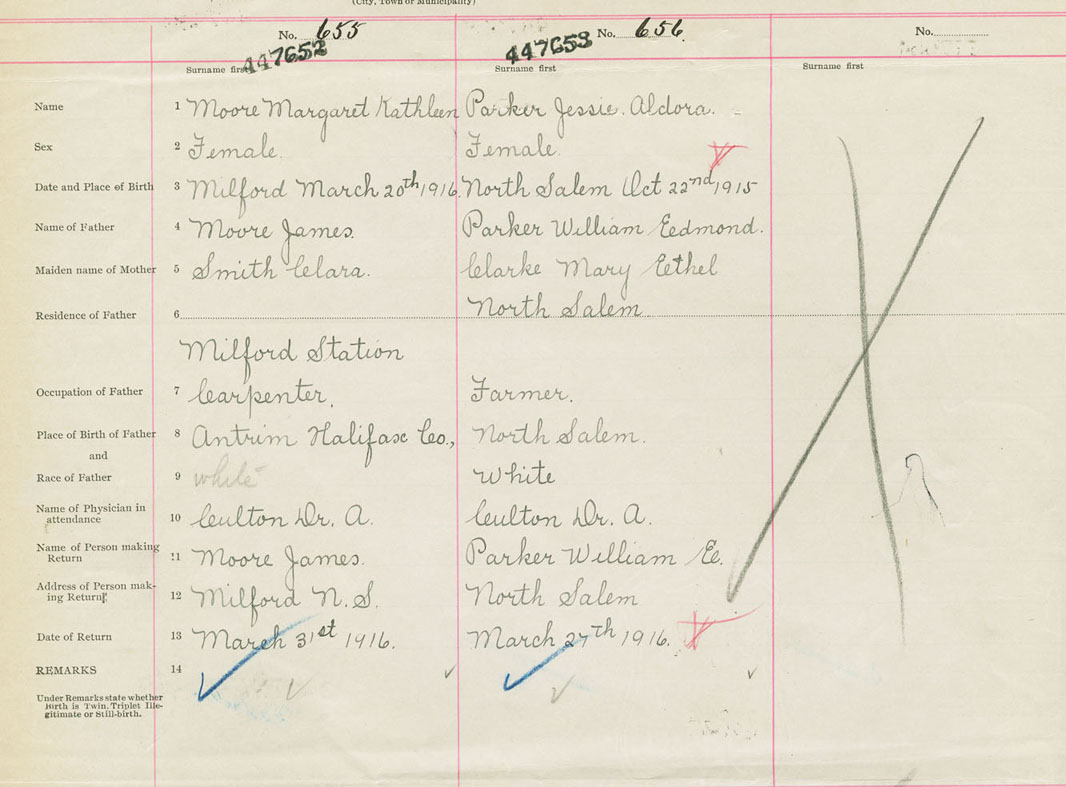 (City, Town or Municipality)
No. 655 No. 656 No.
447652 447653
Surname first Surname first Surname first
Name 1 Moore Margaret Kathleen Parker Jessie. Aldora.
Sex 2 Female. Female.
Date and Place of Birth 3 Milford March 20th 1916. North Salem Oct 22nd 1915
Name of Father 4 Moore James. Parker William Eedmond.
Maiden name of Mother 5 Smith Clara. Clarke Mary Eethel
Residence of Father 6 North Salem
Milford Station
Occupation of Father 7 Carpenter. Farmer.
Place of Birth of Father 8 Antrim Halifax Co., North Salem.
and
Race of Father 9 white White
Name of Physician in
attendance 10 Culton Dr. A. Culton Dr. A.
Name of Person making
Return 11 Moore James. Parker William Ee.
Address of Person mak-
ing Return 12 Milford N.S. North Salem
Date of Return 13 March 31st 1916. March 27th 1916.
REMARKS 14
Under Remarks state whether
Birth is Twin, Triplet Ille-
gitimate or Still-birth.